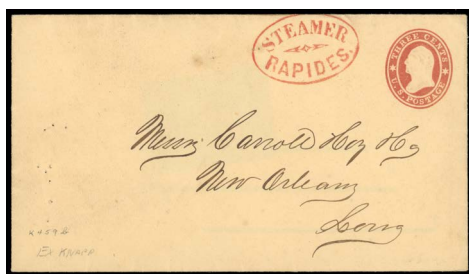 STEAMER
RAPIDES.
THREE CENTS
U.S. POSTAGE
Messrs Carroll Hoy & Co
New Orleans
Ex KNAPP